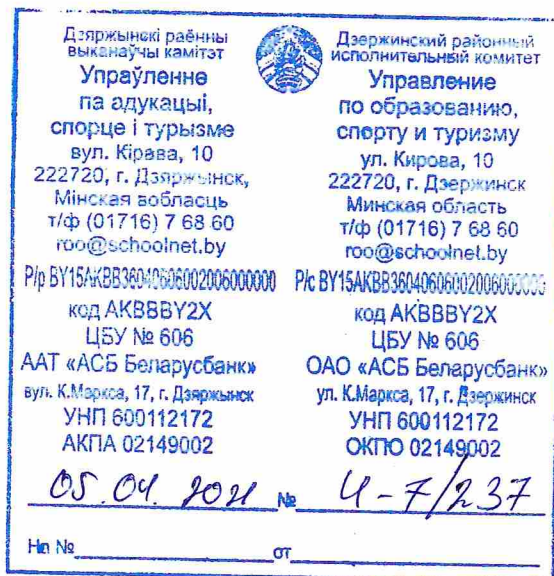 Дзяржынскі раённы
выканаўчы камітэт
Упраўленне
па адукацыі,
спорце і турызме
вул. Кірава, 10
222720, г. Дзяржынск,
Мінская вобласць
т/ф (01716) 7 68 60
roo@schoolnet.by
Р/р BY15AKBB36040606002006000000
код AKBBBY2X
ЦБУ № 606
ААТ «АСБ Беларусбанк»
вул. К.Маркса, 17, г. Дзяржынск
УНП 600112172
АКПА 02149002
Дзержинский районный
исполнительный комитет
Управление
по образованию,
спорту и туризму
ул. Кирова, 10
222720, г. Дзержинск
Минская область
т/ф (01716) 7 68 60
roo@schoolnet.by
Р/с BY15AKBB36040606002006000000
код AKBBBY2X
ЦБУ № 606
ОАО «АСБ Беларусбанк»
ул. К.Маркса, 17, г. Дзержинск
УНП 600112172
ОКПО 02149002
05.04.2021 № 4-7/237
На № от